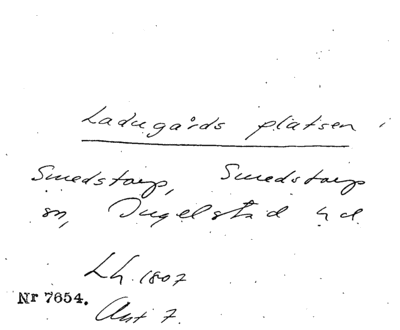 Ladugårds platsen
Smedstorp, Smedstorp
sn, Ingelstad hd.
Lh. 1807
Nr 7654.
Akt 7.